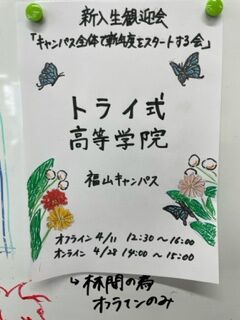 新入生観迎会
「キャンパス全体で新年度をスタートする会」
トライ式
高等学院
福山キャンパス
オフライン 4/11 12:30〜16:00
オンライン 4/28 14:00〜15:00
↳ 休閉の為
オフラインのみ